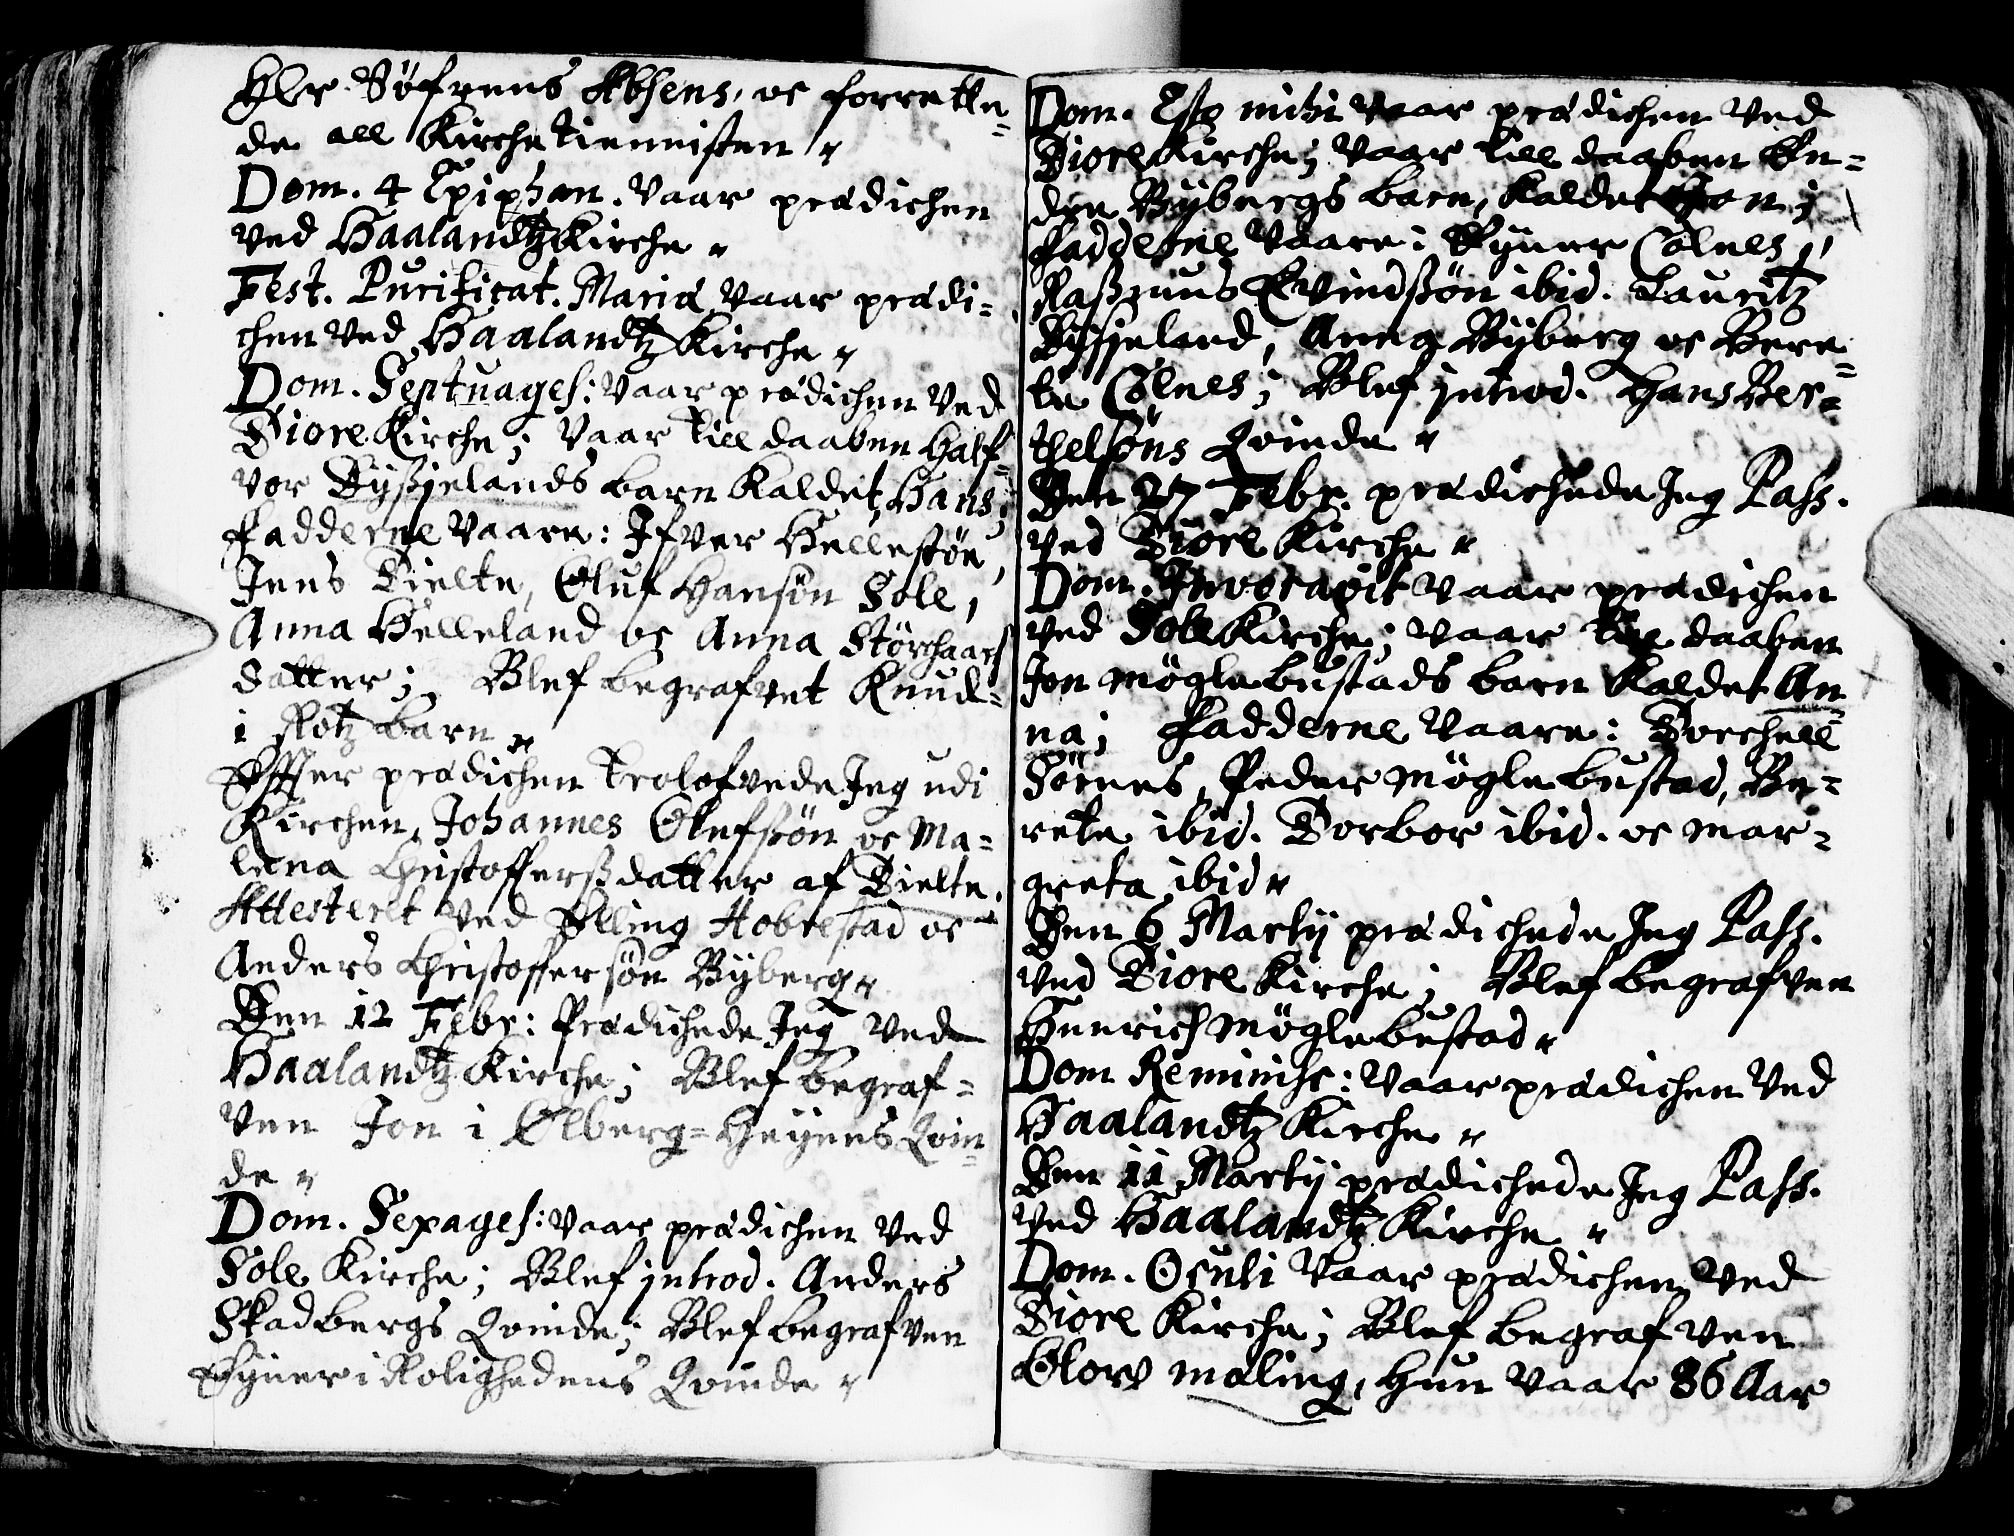 Her Söfrens Absens, oc forrette¬
de all Kirche tiennisten
Dom. 4 Epiphan. vaar prædichen
ved Haalandtz Kirche
Fest. Purificat. Mariæ vaar prædi¬
chen ved Haalandtz Kirche
Dom. Septuages: vaar prædichen ved
Tiore Kirche; vaar till daaben Half¬
vor Tÿßjelands barn kaldet Hans;
Fadderne vaare: Ifver Hellestöe,
Jens Tielte, Oluf Hansön Sole,
Anna Helleland oc Anna Störchaars
datter; Blef begrafvet Knud
i Rotz barn
Effter prædichen trolofvede Jeg udi
Kirchen, Johannes Olufßön oc Ma¬
lena Christofferßdatter af Tielte.
Attesteret ved Elling Hobrestad oc
Anders Christoffersön Rÿberg
Den 12 Febr: Prædichede Jeg ved
Haalandtz Kirche; Blef begraf¬
ven Jon i Ølberg-Heÿens Qvin¬
de
Dom. Sexages: vaar prædichen ved
Sole Kirche; Blef introd. Anders
Skadbergs Qvinde; Blef begrafven
Eÿner i Rolighedens Qvinde
Dom. Esto mihi vaar prædichen ved
Tiore Kirche; vaar till daaben
Rÿbergs barn, kaldet
Fadderne vaare: Eÿner Colnes,
Raßmus Evindßön ibid. Lauritz
Tÿsjeland, Anna Rÿberg oc Bere¬
te Colnes; Blef introd. Hans Ber¬
thelsöns Qvinde
Den 27 Febr. prædichede Jeg Pass.
ved Tiore Kirche
Dom. Invocavit vaar prædichen
ved Sole Kirche; vaar till daaben
Jon Möglebustads barn kaldet An¬
na; Fadderne vaare: Torchell
Sörnes, Peder Möglebustad, Be¬
rete ibid. Borbor ibid. oc Mar¬
greta ibid
Den 6 Martij prædichede Jeg Pass.
ved Tiore Kirche; Blef begrafven
Henrich Möglebustad
Dom Reminisc: vaar prædichen ved
Haalandtz Kirche
Den 11 Martij prædichede Jeg Pass.
ved Haalandtz Kirche
Dom. Oculi vaar prædichen ved
Tiore Kirche; Blef begrafven
Olow Maling, Hun vaar 86 Aar